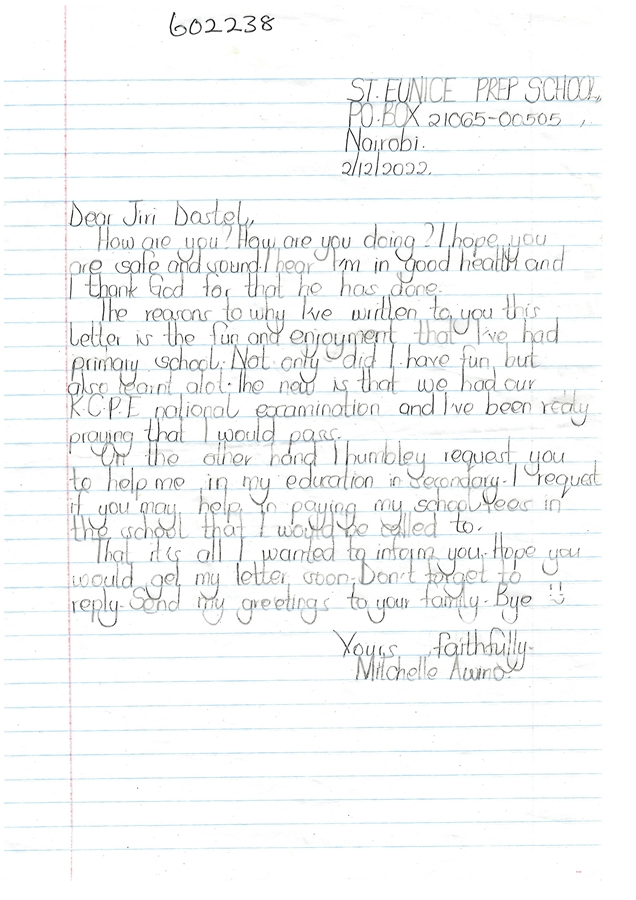 602238
ST. EUNICE PREP SCHOOL,
P.O. BOX 21065-00505 ,
Nairobi.
2/12/2022.
Dear Jiri Dastel,
How are you? How are you doing? I hope you
are safe and sound. I hear I'm in good health and
I thank God for that he has done.
The reasons to why I've written to you this
letter is the fun and enjoyment that I've had
primary school. Not only did I have fun but
also learnt alot. The new is that we had our
K.C.P.E national examination and I've been really
praying that I would pass.
On the other hand I humbley request you
to help me in my education in Secondary. I request
if you may help in paying my school fees in
the school that I would be called to.
That it is all I wanted to inform you. Hope you
would get my letter soon. Don't forget to
reply. Send my greetings to your family. Bye
Yours faithfully.
Mitchelle Awino.